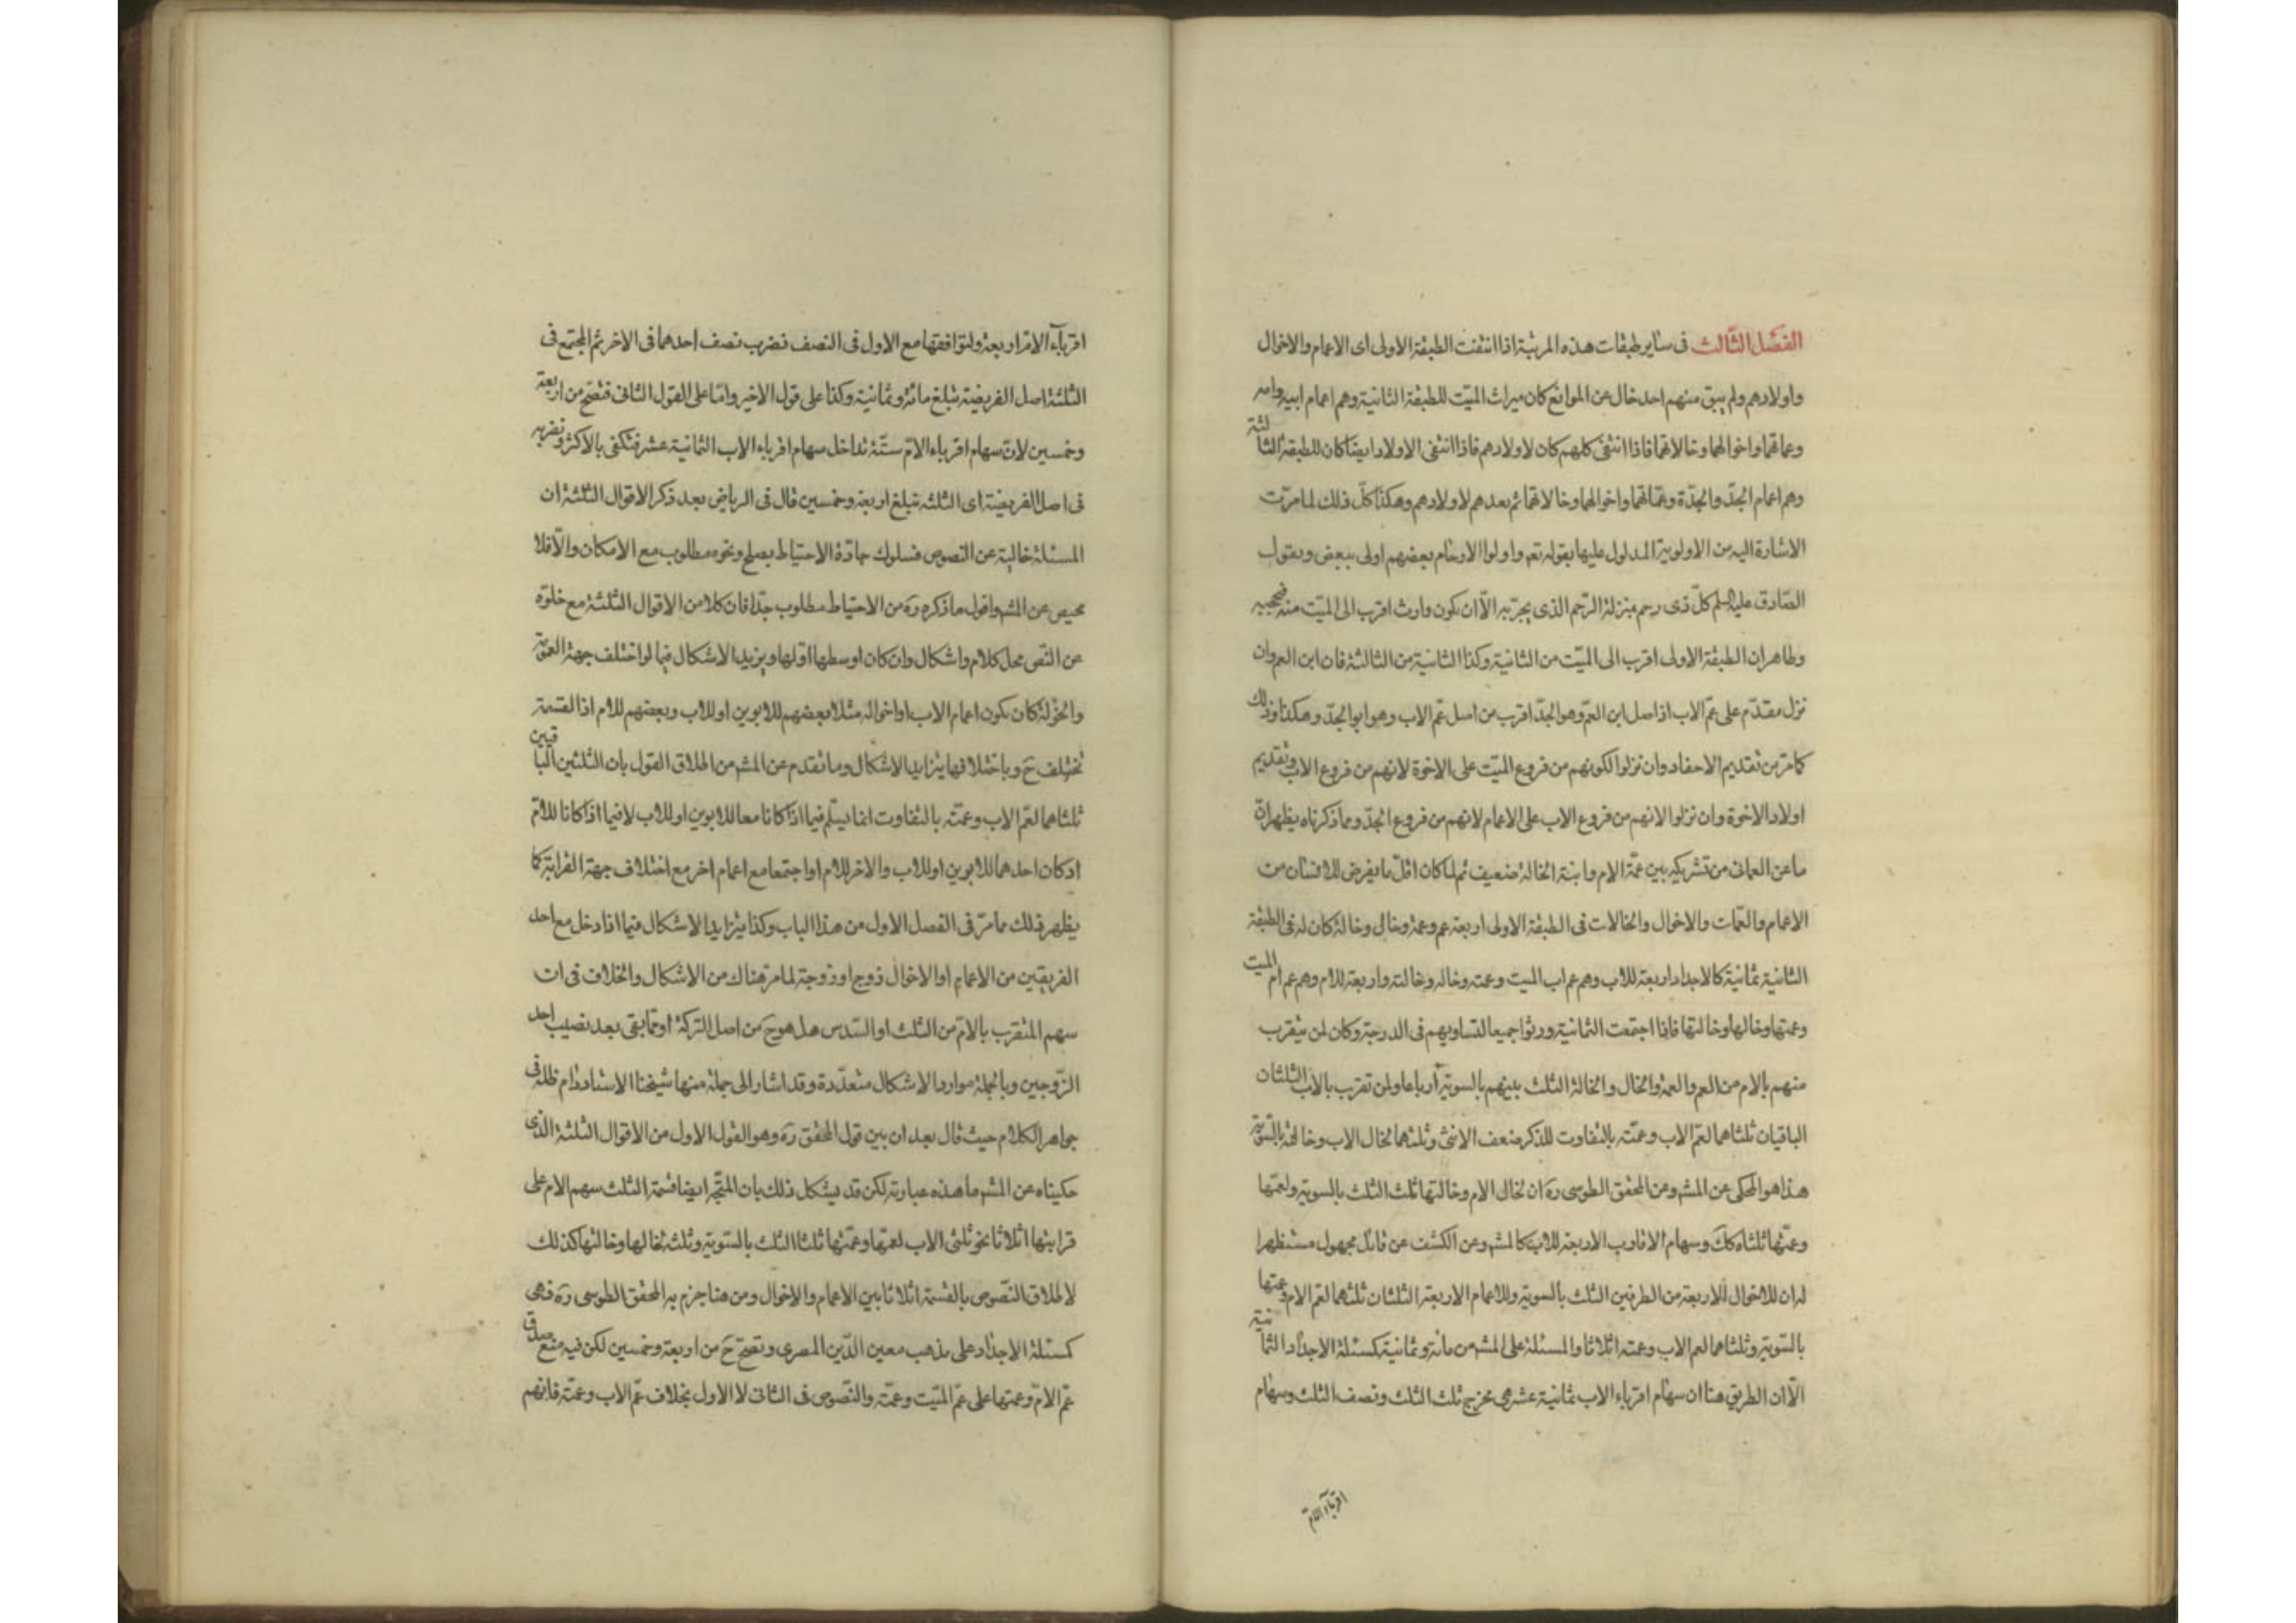 الفصل الثالث فى ساير طبقات هذه المرتبة اذا انتفت الطبقة الاولى اى الاعمام والاخوال
واولادهم ولم يبق منهم احد خال عن الموانع كان ميراث الميّت للطبقة الثانية وهم اعمام ابيه وامه
وعماتهما واخوالهما وخالاتهما فاذا انتفى كلهم كان لاولادهم فاذا انتفى الاولاد ايضا كان للطبقة الثالثة
وهم اعمام الجدّ والجدّة وعمّاتهما واخوالهما وخالاتهما ثم بعدهم لاولادهم وهكذا كلّ ذلك لما مرّت
الاشارة اليه من الاولوية المدلول عليها بقوله تعم واولوا الارحام بعضهم اولى ببعض وبقول
الصّادق عليه السلم كلّ ذى رحم بمنزلة الرّحم الذى يجرّ به الّا ان يكون وارث اقرب الى الميّت منه فيحجبه
وظاهر ان الطبقة الاولى اقرب الى الميّت من الثانية وكذا الثانية من الثالثة فان ابن العم وان
نزل مقدّم على عمّ الاب اذ اصل ابن العمّ وهو الجدّ اقرب من اصل عمّ الاب وهو ابو الجدّ وهكذا وذلك
كما مرّ من تقديم الاحفاد وان نزلوا لكونهم من فروع الميّت على الاخوة لانهم من فروع الاب وتقديم
اولاد الاخوة وان نزلوا لانهم من فروع الاب على الاعمام لانهم من فروع الجدّ ومما ذكرناه يظهر انّ
ما عن العمانى من تشريكه بين عمّة الام وابنة الخالة ضعيف ثم لما كان اقلّ ما يفرض للانسان من
الاعمام والعمّات والاخوال والخالات فى الطبقة الاولى اربعة عم وعمة وخال وخالة كان له فى الطبقة
الثانية ثمانية كالاجداد اربعة للاب وهم عم اب الميت وعمته وخاله وخالته واربعة للام وهم عم ام الميت
وعمتها وخالها وخالتها فاذا اجتمعت الثمانية ورثوا جميعا لتساويهم فى الدرجة وكان لمن يتقرب
منهم بالام من العم والعمة والخال والخالة الثلث بينهم بالسوية ارباعا ولمن تقرب بالاب الثلثان
الباقيان ثلثاهما لعمّ الاب وعمّته بالتفاوت للذكر ضعف الانثى وثلثهما لخال الاب وخالته بالسّويّة
هذا هو المحكى عن المشم وعن المحقق الطوسى ره ان لخال الام وخالتها ثلث الثلث بالسوية ولعمّها
وعمّتها ثلثاه كك وسهام الاقارب الاربعة للاب كالمشم وعن الكشف عن قائل مجهول مستظهرا
له ان للاخوال الاربعة من الطرفين الثلث بالسوية وللاعمام الاربعة الثلثان ثلثهما لعمّ الام وعمتها
بالسّوية وثلثاهما لعم الاب وعمته اثلاثا والمسئلة على المشم من مائة وثمانية كمسئلة الاجداد الثمانية
الّا ان الطريق هنا ان سهام اقرباء الاب ثمانية عشر هى مخرج ثلث الثلث ونصف الثلث وسهام
اقربآء الام
اقربآء الام اربعة ولتوافقها مع الاول فى النصف نضرب نصف احدهما فى الاخر ثم المجتمع فى
الثلثة اصل الفريضة تبلغ مائة وثمانية وكذا على قول الاخير وامّا على القول الثانى فتصحّ من اربعة
وخمسين لانّ سهام اقرباء الامّ ستّة تداخل سهام اقرباء الاب الثمانية عشر فنكتفى بالاكثر ونضربه
فى اصل الفريضة اى الثلثة تبلغ اربعة وخمسين قال فى الرياض بعد ذكر الاقوال الثلثة ان
المسئلة خالية عن النصوص فسلوك جادّة الاحتياط بصلح ونحوه مطلوب مع الامكان والّا فلا
محيص عن المشم واقول ما ذكره ره من الاحتياط مطلوب جدّا فان كلا من الاقوال الثلثة مع خلوّه
عن النّص محل كلام واشكال وان كان اوسطها اوّلها ويزيد الاشكال فيما لو اختلف جهة العمّة
والخؤلة كان يكون اعمام الاب او اخواله مثلا بعضهم للابوين او للاب وبعضهم للام اذ القسمة
تختلف ح وباختلافها يتزايد الاشكال وما تقدم عن المشم من اطلاق القول بان الثلثين الباقيين
ثلثاهما لعمّ الاب وعمّته بالتفاوت انما يسلّم فيما اذا كانا معا للابوين او للاب لا فيما اذا كانا للامّ
او كان احدهما للابوين او للاب والاخر للام او اجتمعا مع اعمام اخر مع اختلاف جهة القرابة كما
يظهر ذلك مما مرّ فى الفصل الاول من هذا الباب وكذا يتزايد الاشكال فيما اذا دخل مع احد
الفريقين من الاعمام او الاخوال زوج او زوجة لما مر هناك من الاشكال والخلاف فى ان
سهم المتقرب بالامّ من الثلث او السّدس هل هو ح من اصل التركة او ممّا بقى بعد نصيب احد
الزّوجين وبالجملة موارد الاشكال متعدّدة وقد اشار الى جملة منها شيخنا الاستاد دام ظله فى
جواهر الكلام حيث قال بعد ان بين قول المحقق ره وهو القول الاول من الاقوال الثلثة الذى
حكيناه عن المشم ما هذه عبارته لكن قد يشكل ذلك بان المتّجه ايضا قسمة الثلث سهم الام على
قرابتها اثلاثا نحو ثلثى الاب لعمها وعمّتها ثلثا الثلث بالسّوية وثلثه لخالها وخالتها كذلك
لاطلاق النّصوص بالقسمة اثلاثا بين الاعمام والاخوال ومن هنا جزم به المحقق الطوسى ره فهى
كمسئلة الاجداد على مذهب معين الدّين المصرى وتصحّ ح من اربعة وخمسين لكن فيه منع صدق
عمّ الامّ وعمتها على عمّ الميّت وعمّته والنّصوص فى الثانى لا الاول بخلاف عمّ الاب وعمّته فانهم